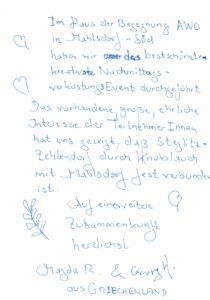 Im Haus der Begegnung AWO
in Mahlsdorf-Süd
haben wir das bestschönste
kreativste Nachmittags-
verkostungsEvent durchgeführt
Das vorhandene, große, ehrliche
Interesse der Teilnehmer:Innen
hat uns gezeigt, daß Steglitz-
Zehlendorf durch Knoblauch
mit Mahlsdorf fest verbunden
ist.
Auf eine weitere
Zusammenkunft
herzlichst
Magda R. &
aus GRIECHENLAND